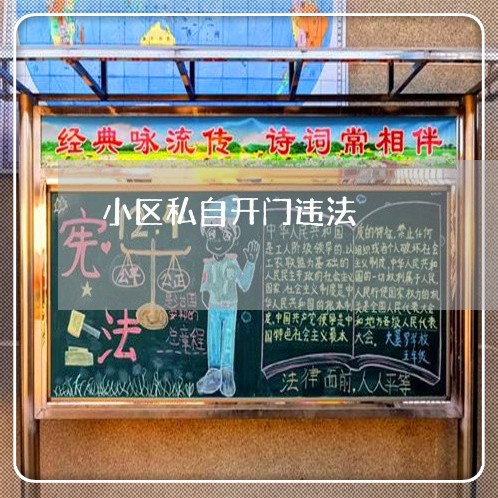 经典咏流传 诗词常相伴
小区私自开门违法
宪
法
公平
公正
总章程
中华人民共和国
是工人阶级领导的,以
工农联盟为基础的
人民民主专政的社会主义
国家,社会主义制度是中
华人民共和国的根本制
度,中国共产党领导是中
国特色社会主义最本
质的特征,禁止任何
组织或者个人破坏社会
主义制度,中华人民共和
国的一切权利属于人民,
人民行使国家权力的机
关是全国人民代表大会
和地方各级人民代表
大会。
五年级
法律面前,人人平等